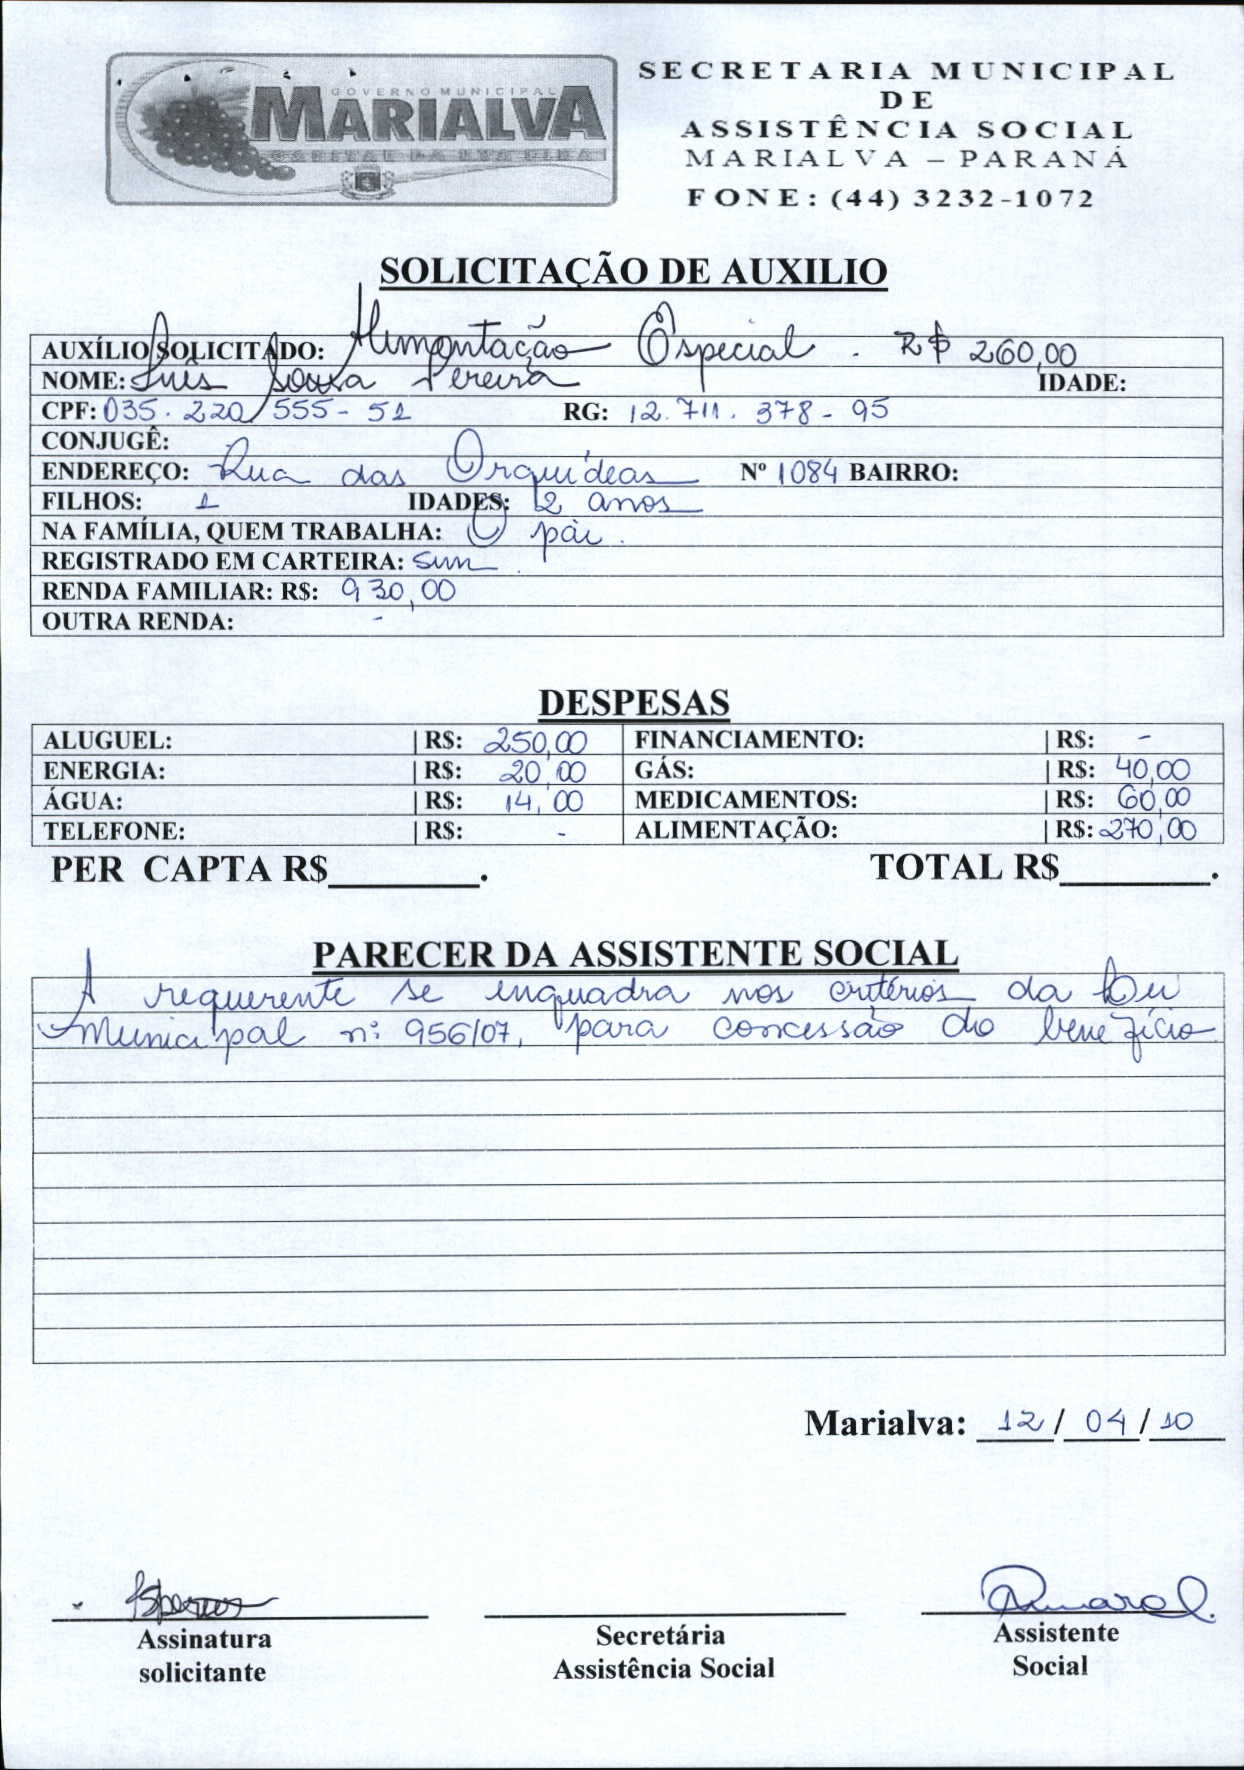 GOVERNO MUNICIPAL
MARIALVA
CAPITAL DA UVA FINA
SECRETARIA MUNICIPAL
DE
ASSISTÊNCIA SOCIAL
MARIALVA – PARANÁ
FONE: (44) 3232-1072
SOLICITAÇÃO DE AUXILIO
AUXÍLIO SOLICITADO: Alimentação Especial . R$ 260,00
NOME: Luís Souza Pereira IDADE:
CPF: 035.220 555-51 RG: 12.711.378-95
CONJUGÊ:
ENDEREÇO: Rua das Orquídeas Nº 1084 BAIRRO:
FILHOS: 1 IDADES: 12 anos
NA FAMÍLIA, QUEM TRABALHA: O pai.
REGISTRADO EM CARTEIRA: Sim.
RENDA FAMILIAR: R$: 930,00
OUTRA RENDA: -
DESPESAS
ALUGUEL: | R$: 250,00 FINANCIAMENTO: | R$: -
ENERGIA: | R$: 20,00 GÁS: | R$: 40,00
ÁGUA: | R$: 14,00 MEDICAMENTOS: | R$: 60,00
TELEFONE: | R$: - ALIMENTAÇÃO: | R$: 270,00
PER CAPTA R$________. TOTAL R$________.
PARECER DA ASSISTENTE SOCIAL
A requerente se enquadra nos critérios da Lei
Municipal nº 956/07, para concessão do benefício
Marialva: 12/04/10
Amaral.
Assinatura solicitante
Secretária Assistência Social
Assistente Social